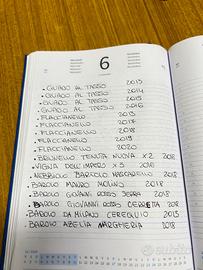 6
• GUADO AL TASSO 2013
• GUADO AL TASSO 2014
• GUADO AL TASSO 2015
• GUADO AL TASSO 2016
• FLACCIANELLO 2015
• FLACCIANELLO 2017
• FLACCIANELLO 2018
• FLACCIANELLO 2019
• FLACCIANELLO 2020
• BRUNELLO TENUTA NUOVA X2 2018
• VIGNA DELL'IMPERO X3 2016
• NEBBIOLO BARTOLO MASCARELLO 2018
• BAROLO MAURO MOLINO 2018
• BAROLO GIOVANNI ROSSO SERRA 2018
• BAROLO GIOVANNI ROSSO CERRETTA 2018
BAROLO DAMILANO CEREQUIO 2015
BAROLO ABELIA MARGHERIA 2018
subito